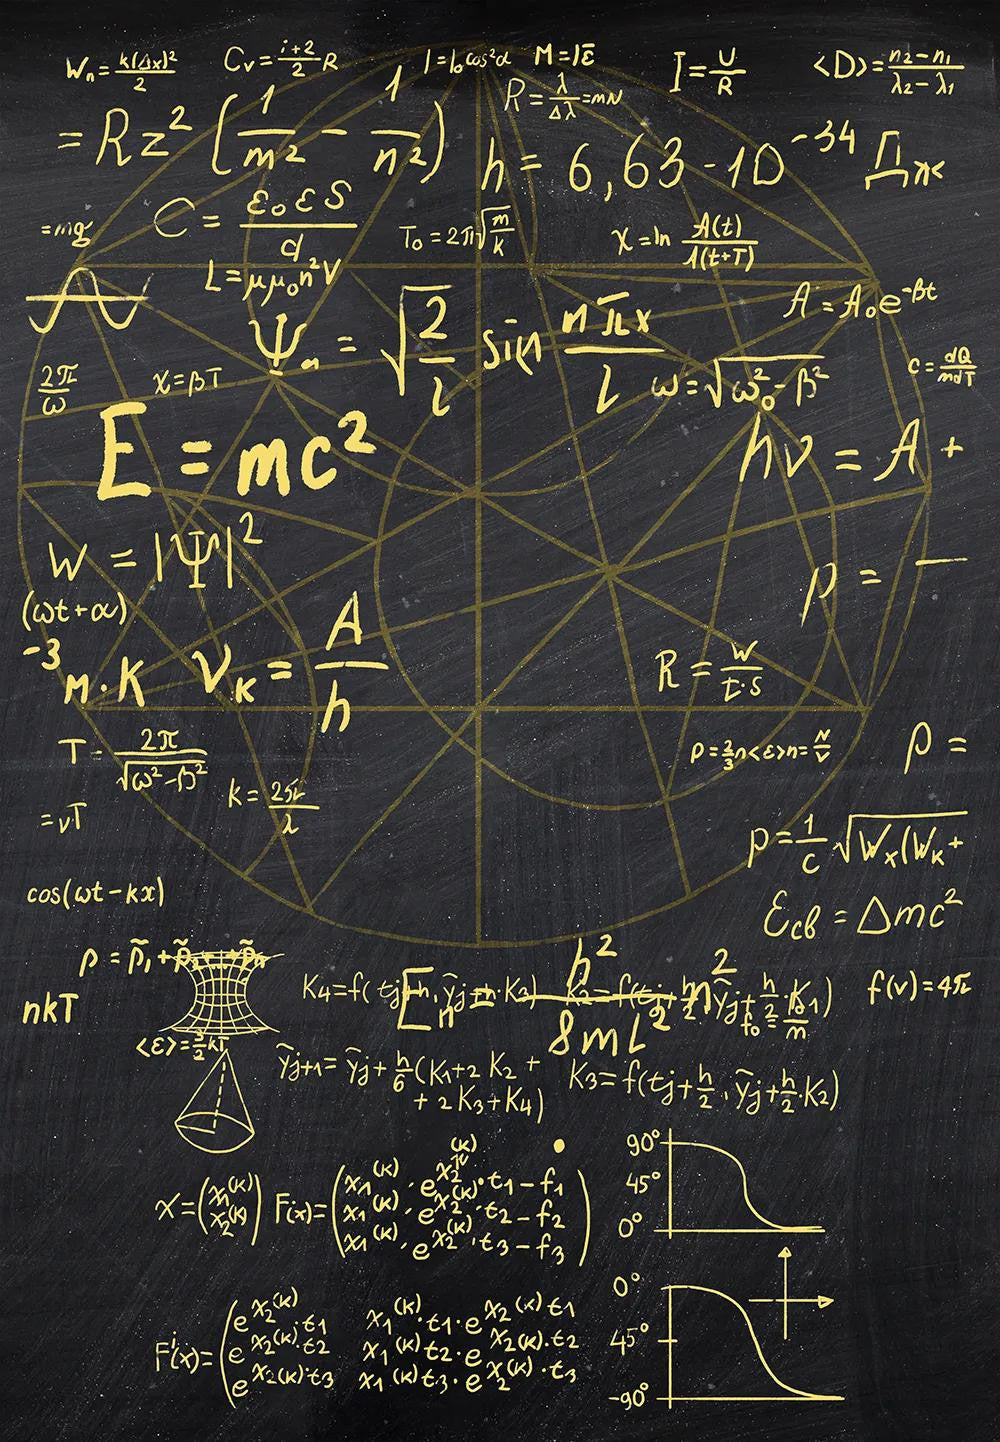 Wₙ = k(Δx)²/2
Cᵥ = i+2/2 R
I = I₀cos²α
M = IE
I = U/R
<D> = n₂ − n₁/λ₂ − λ₁
R = λ/Δλ = mN
= Rz² (1/m² − 1/n²)
h = 6,63 · 10⁻³⁴ Дж
= mg
C = ε₀εS/d
T₀ = 2π√m/k
χ = ln A(t)/A(t+T)
L = μμ₀n²V
A = A₀e^−βt
Ψₙ = √2/l sin nπx/l
c = dQ/mdT
2π/ω
χ = βT
ω = √ω₀² − β²
E = mc²
hν = A +
W = |Ψ|²
(ωt + α)
p = —
−3
м · К
νₖ = A/h
R = W/t·S
T = 2π/√ω² − β²
p = 2/3 n<ε> n = N/V
ρ =
k = 2π/λ
= νT
p = 1/c √Wₖ(Wₖ +
cos(ωt − kx)
Eсв = Δmc²
nkT
K₄ = f(tⱼ + h, ỹⱼ + h · K₃)
Eₙ = h²/8mL² n²
f(v) = 4π
<ε> = 3/2 kT
ỹⱼ₊₁ = ỹⱼ + h/6 (K₁ + 2K₂ +
+ 2K₃ + K₄)
K₃ = f(tⱼ + h/2, ỹⱼ + h/2 · K₂)
90°
45°
0°
X = (x₁⁽ᵏ⁾ x₂⁽ᵏ⁾)
F(x) = (x₁⁽ᵏ⁾ · e^x₂⁽ᵏ⁾ · t₁ − f₁
x₁⁽ᵏ⁾ · e^x₂⁽ᵏ⁾ · t₂ − f₂
x₁⁽ᵏ⁾ · e^x₂⁽ᵏ⁾ · t₃ − f₃)
0°
45°
-90°
F'(x) = (e^x₂⁽ᵏ⁾·t₁ x₁⁽ᵏ⁾·t₁·e^x₂⁽ᵏ⁾t₁
e^x₂⁽ᵏ⁾·t₂ x₁⁽ᵏ⁾t₂·e^x₂⁽ᵏ⁾·t₂
e^x₂⁽ᵏ⁾·t₃ x₁⁽ᵏ⁾t₃·e^x₂⁽ᵏ⁾·t₃